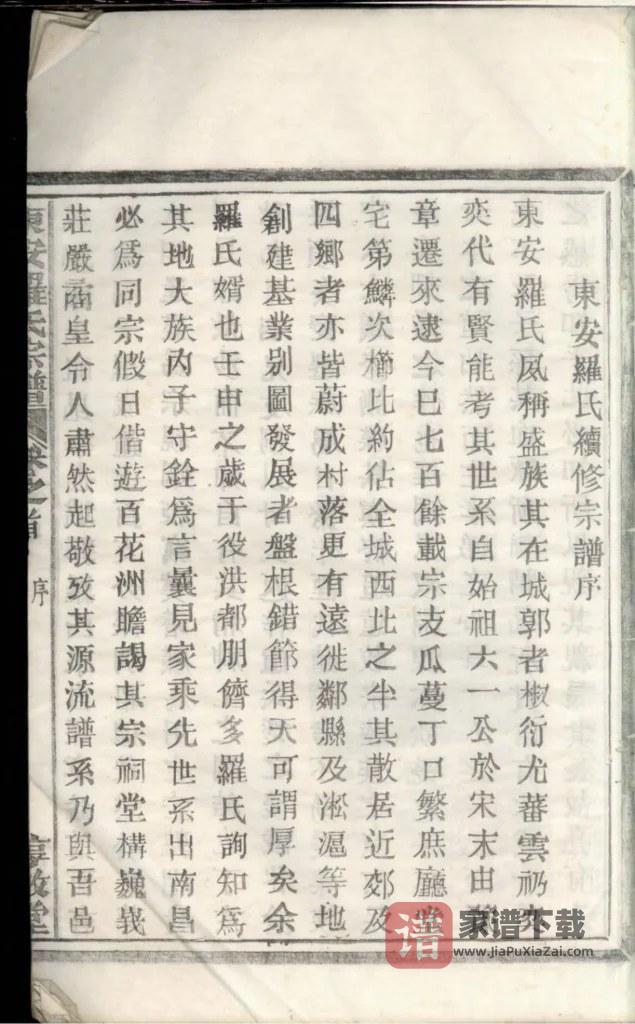 東安羅氏續修宗譜序
東安羅氏夙稱盛族其在城郭者椒衍尤蕃雲礽奕
奕代有賢能考其世系自始祖六一公於宋末由
章遷來逮今已七百餘載宗支瓜蔓丁口繁庶廳堂
宅第鱗次櫛比約佔全城西北之半其散居近郊及
四鄉者亦皆蔚成村落更有遠徙鄰縣及淞滬等地
創建基業别圖發展者盤根錯節得天可謂厚矣余
羅氏婿也壬申之歲于役洪都朋儕多羅氏詢知爲
其地大族内子守銓爲言曩見家乘先世系出南昌
必爲同宗假日偕遊百花洲瞻謁其宗祠堂構巍峩
莊嚴矞皇令人肅然起敬攷其源流譜系乃與吾邑
東安羅氏宗譜 卷之首 序 惇敘堂
谱 家谱下载
www.JiaPuXiaZai.com